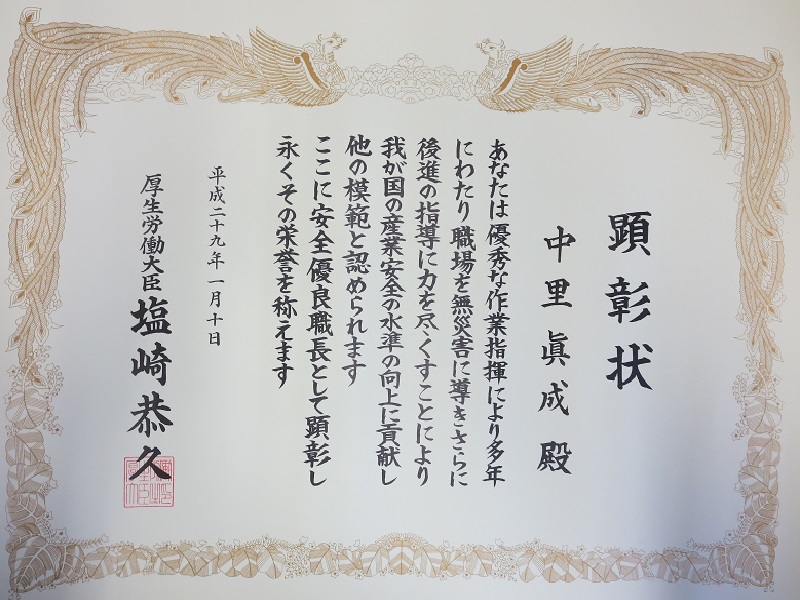 顕彰状
中里眞成 殿
あなたは優秀な作業指揮により多年
にわたり職場を無災害に導きさらに
後進の指導に力を尽くすことにより
我が国の産業安全の水準の向上に貢献し
他の模範と認められます
ここに安全優良職長として顕彰し
永くその栄誉を称えます
平成二十九年一月十日
厚生労働大臣 塩崎恭久